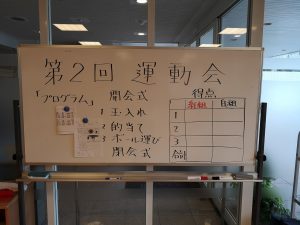 第2回 運動会
「プログラム」
開会式
1 玉入れ
2 的当て
3 ボール運び
閉会式
得点
赤組 白組
1
2
3
合計